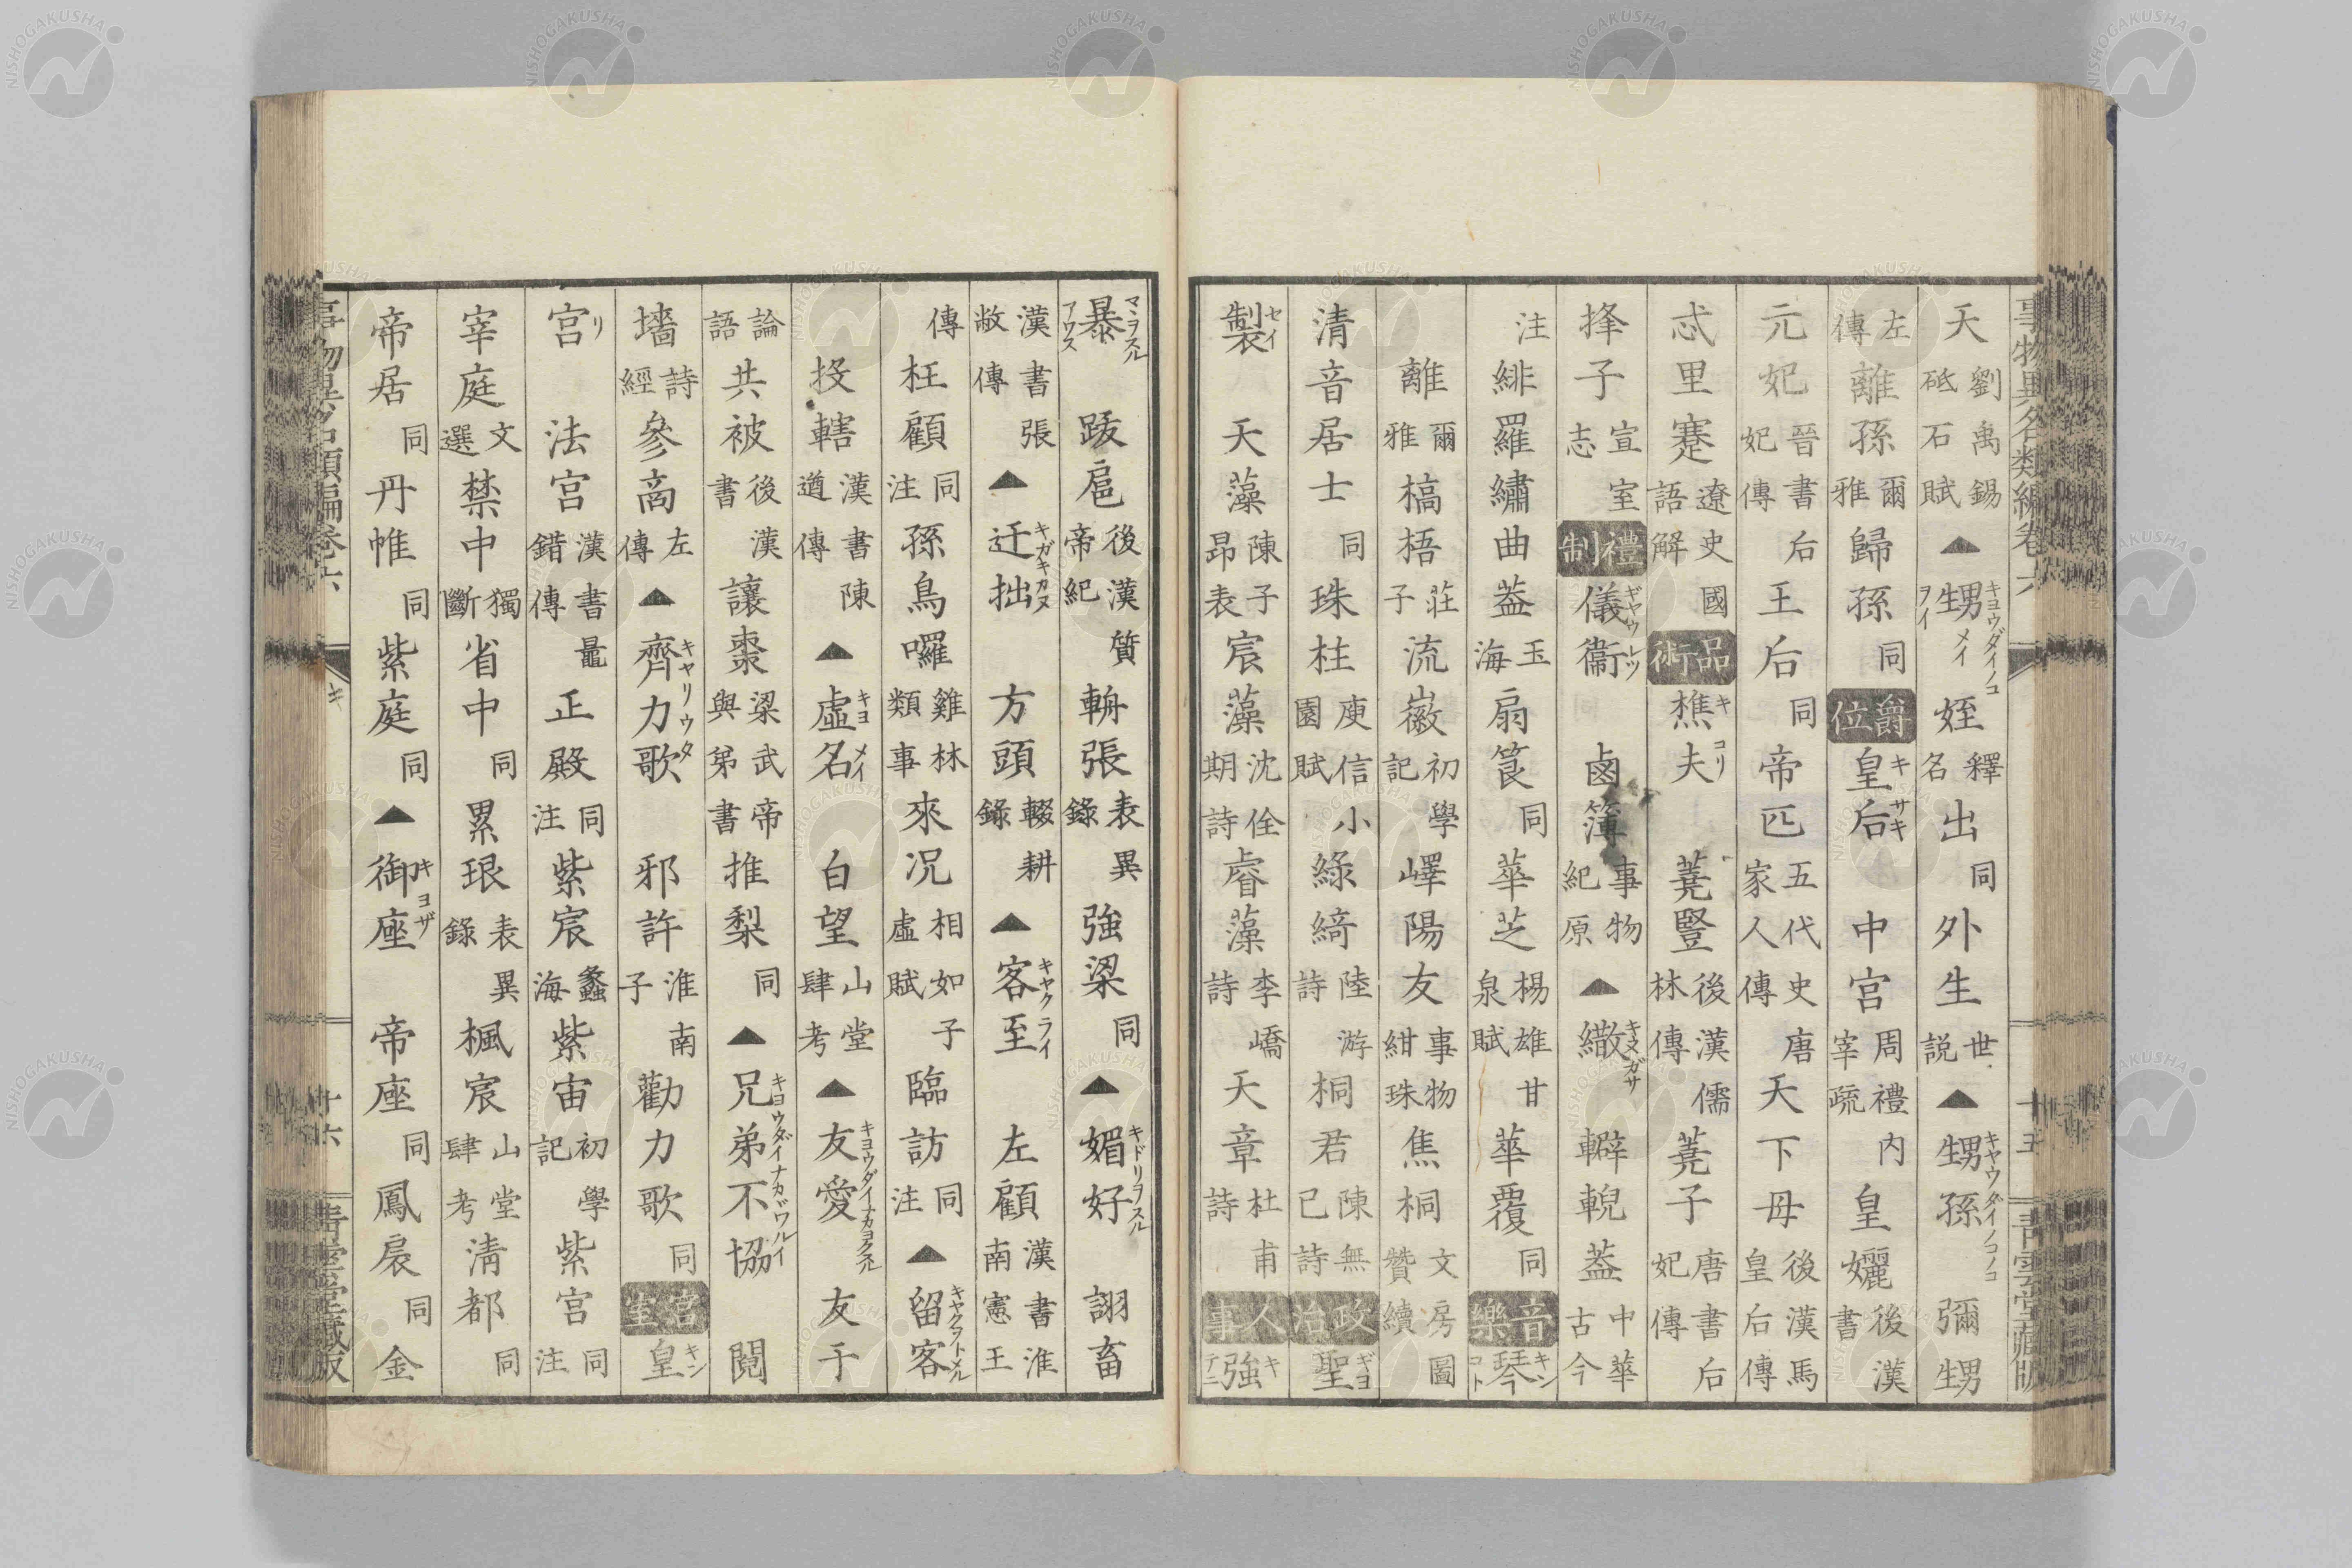 事物異名類編卷六 十五 青雲堂藏版
天 劉禹錫砥石賦 ▲甥 キヨウダイノコ ヲイメイ 姪 釋名 出 同 外生 世説 ▲甥孫 キヤウダイノコノコ 彌甥
左傳 離孫 爾雅 歸孫 同 爵位 皇后 キサキ 中宮 周禮内宰疏 皇孋 後漢書
元妃 晉書后妃傳 王后 同 帝匹 五代史唐家人傳 天下母 後漢馬皇后傳
忒里蹇 遼史國語解 品術 樵夫 キコリ 蕘豎 後漢儒林傳 蕘子 唐書后妃傳
捀子 宣室志 禮制 儀衞 ギヤウレツ 鹵簿 事物紀原 ▲繖 キヌガサ 輗葢 中華古今
注 緋羅繡曲葢 玉海 扇筤 同 華芝 楊雄甘泉賦 華覆 同 音樂 琴 キンコト
離 爾雅 槁梧 莊子 流徽 初學記 嶧陽友 事物紺珠 焦桐 文房圖贊續
清音居士 同 珠柱 庾信小園賦 綠綺 陸游詩 桐君 陳無已詩 政治 聖 ギヨ
製 セイ 天藻 陳子昂表 宸藻 沈佺期詩 睿藻 李嶠詩 天章 杜甫詩 人事 強 キ テニ
暴 マヽヲスル アワス 跋扈 後漢質帝紀 輈張 表異錄 強梁 同 ▲媚好 キドリヲスル 詡畜
漢書張敞傳 ▲迂拙 キガキカヌ 方頭 輟耕錄 ▲客至 キヤクライ 左顧 漢書淮南憲王
傳 枉顧 同注 孫鳥囉 雞林類事 來况 相如子虛賦 臨訪 同注 ▲留客 キヤクヲトメル
投轄 漢書陳遵傳 ▲虛名 キヨメイ 白望 山堂肆考 ▲友愛 キヨウダイナカヨクスル 友于
論語 共被 後漢書 讓棗 梁武帝與弟書 推梨 同 ▲兄弟不協 キヨウダイナカヾワルイ 鬩
墻 詩經 參商 左傳 ▲齊力歌 キヤリウタ 邪許 淮南子 勸力歌 同 宮室 皇 キン
宮 リ 法宮 漢書鼂錯傳 正殿 同注 紫宸 蠡海 紫宙 初學記 紫宮 同注
宰庭 文選 禁中 獨斷 省中 同 累琅 表異錄 楓宸 山堂肆考 清都 同
帝居 同 丹帷 同 紫庭 同 ▲御座 キヨザ 帝座 同 鳳扆 同 金
事物異名類編卷六 キ 十六 青雲堂藏版
NISHOGAKUSHA